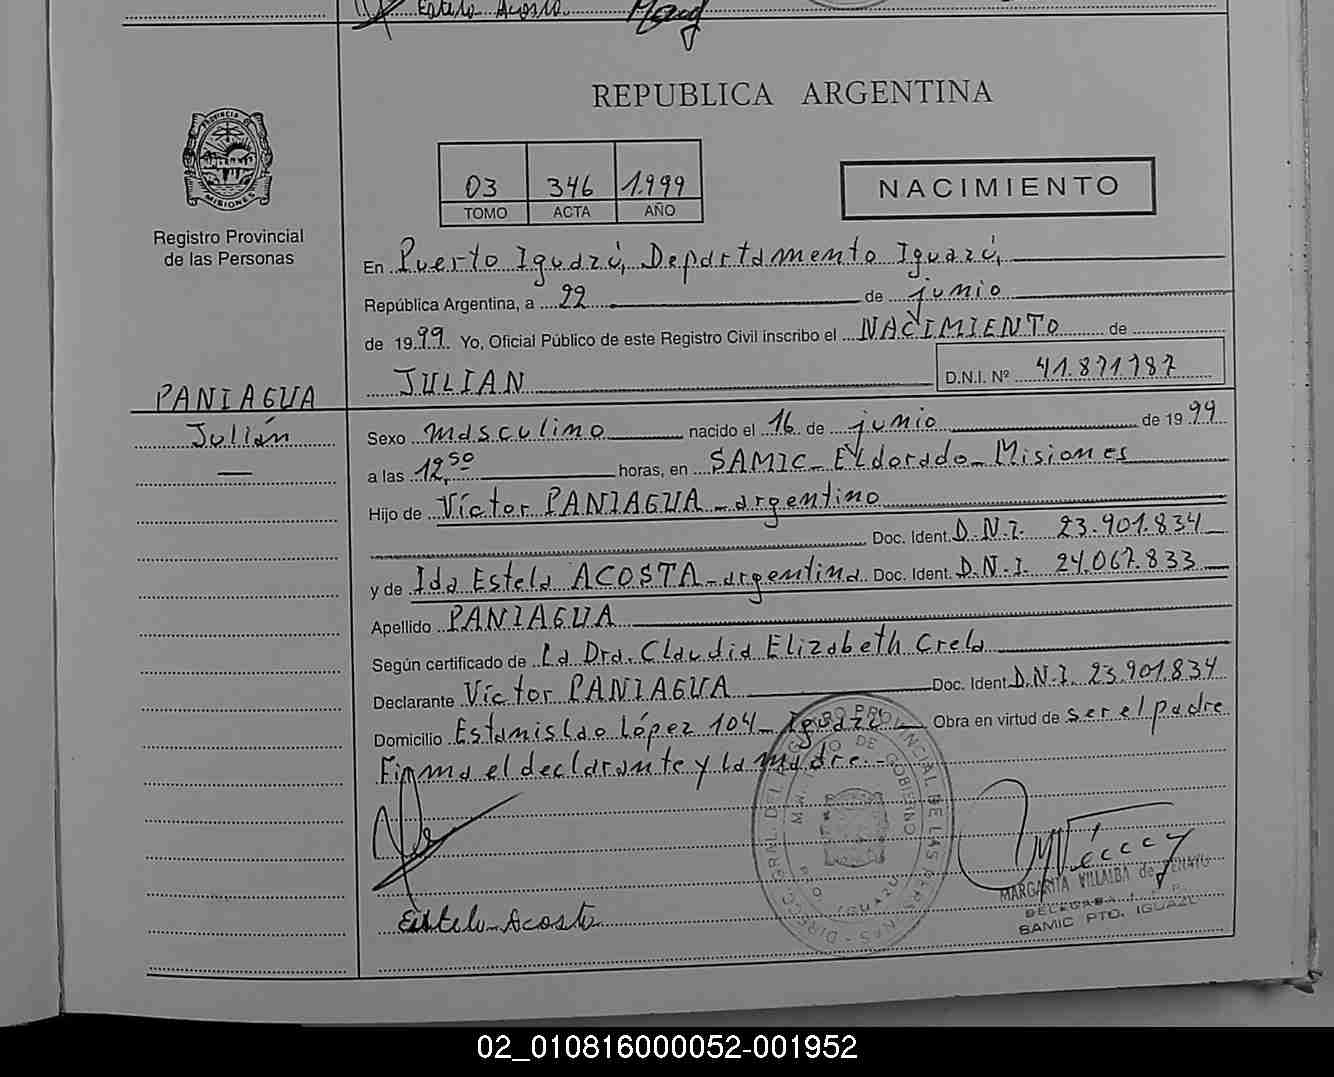 Estela Acosta
REPUBLICA ARGENTINA
PROVINCIA DE
MISIONES
Registro Provincial
de las Personas
03 346 1.999
TOMO ACTA AÑO
NACIMIENTO
En Puerto Iguazú, Departamento Iguazú,
República Argentina, a 22 de junio
de 1999 Yo, Oficial Público de este Registro Civil inscribo el NACIMIENTO de
JULIAN D.N.I. Nº 41.871.787
PANIAGUA
Julián
Sexo masculino nacido el 16 de junio de 1999
a las 12,50 horas, en SAMIC_ Eldorado_ Misiones
Hijo de Víctor PANIAGUA_argentino
Doc. Ident. D.N.I. 23.901.834
y de Ida Estela ACOSTA_argentina Doc. Ident. D.N.I. 24.067.833
Apellido PANIAGUA
Según certificado de La Dra. Claudia Elizabeth Crela
Declarante Víctor PANIAGUA Doc. Ident D.N.I. 23.901.834
Domicilio Estanislao López 104_ Iguazú Obra en virtud de ser el padre
Firma el declarante y la madre.-
DIRECC. GRAL. DEL REGISTRO PROVINCIAL DE LAS PERSONAS
MINISTERIO DE GOBIERNO
IGUAZU
MARGARITA VILLALBA de
DELEGADA
SAMIC PTO. IGUAZU
Estela Acosta
02_010816000052-001952